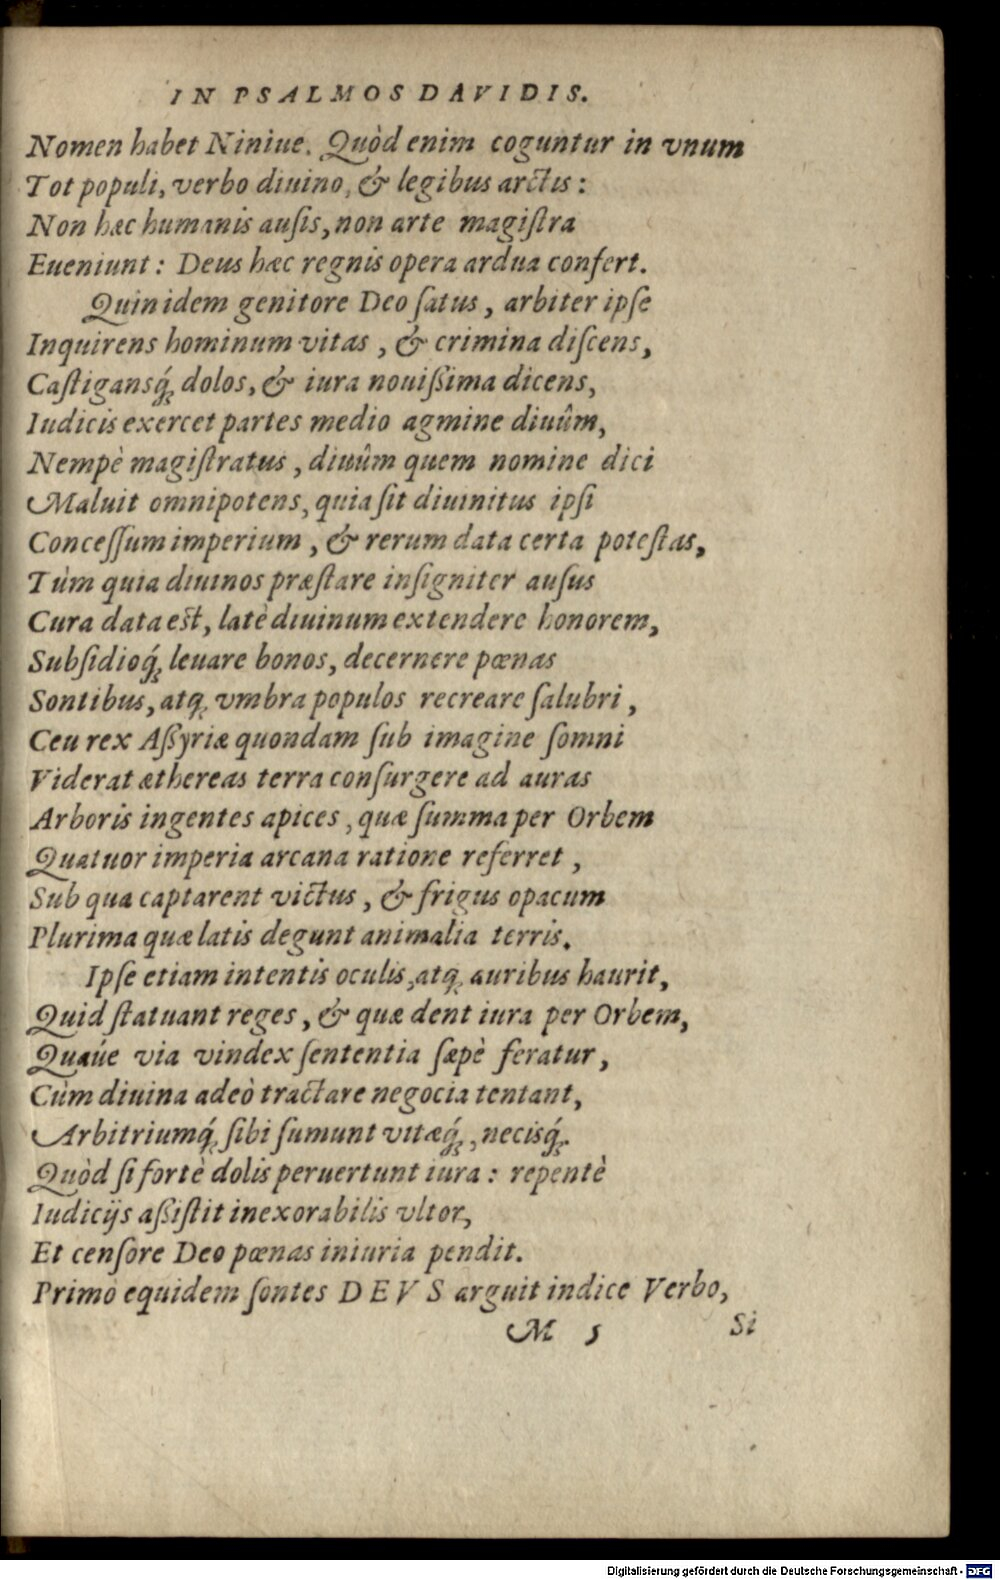 IN PSALMOS DAVIDIS.
Nomen habet Niniue. Quòd enim coguntur in vnum
Tot populi, verbo diuino, & legibus arctis:
Non hæc humanis auſis, non arte magiſtra
Eueniunt: Deus hæc regnis opera ardua confert.
Quin idem genitore Deo ſatus, arbiter ipſe
Inquirens hominum vitas, & crimina diſcens,
Caſtigansq́; dolos, & iura nouißima dicens,
Iudicis exercet partes medio agmine diuûm,
Nempè magiſtratus, diuûm quem nomine dici
Maluit omnipotens, quia ſit diuinitus ipſi
Conceſſum imperium, & rerum data certa poteſtas,
Tùm quia diuinos præſtare inſigniter auſus
Cura data est, latè diuinum extendere honorem,
Subſidioq́; leuare bonos, decernere pœnas
Sontibus, atq; vmbra populos recreare ſalubri,
Ceu rex Aßyriæ quondam ſub imagine ſomni
Viderat æthereas terra conſurgere ad auras
Arboris ingentes apices, quæ ſumma per Orbem
Quatuor imperia arcana ratione referret,
Sub qua captarent victus, & frigus opacum
Plurima quæ latis degunt animalia terris.
Ipſe etiam intentis oculis, atq; auribus haurit,
Quid ſtatuant reges, & quæ dent iura per Orbem,
Quaúe via vindex ſententia ſæpè feratur,
Cùm diuina adeò tractare negocia tentant,
Arbitriumq́; ſibi ſumunt vitæq́;, necisq́;.
Quòd ſi fortè dolis peruertunt iura: repentè
Iudicijs aßiſtit inexorabilis vltor,
Et cenſore Deo pœnas iniuria pendit.
Primò equidem ſontes DEVS arguit indice Verbo,
M 5 Si
Digitalisierung gefördert durch die Deutsche Forschungsgemeinschaft - DFG